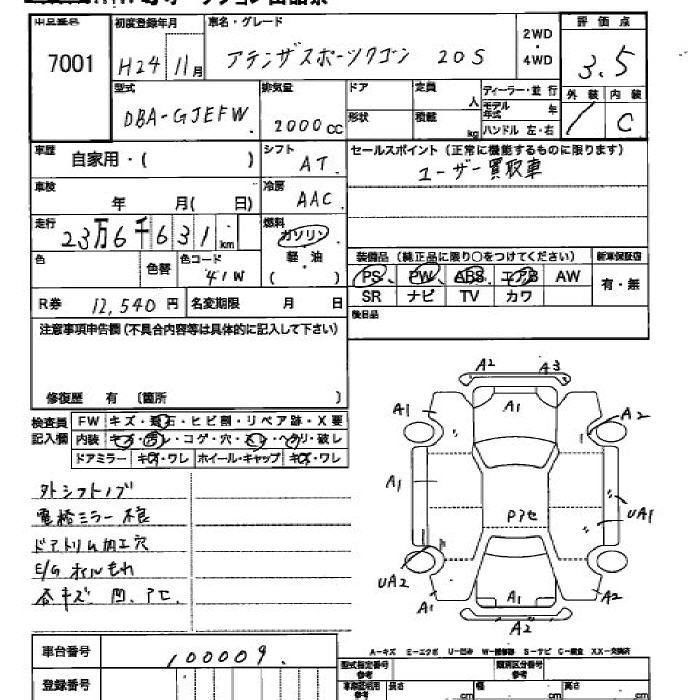 7001
初度登録年月
H24 11月
車名・グレード
アテンザスポーツワゴン 20S
2WD
・
4WD
評価点
3.5
型式
DBA-GJEFW
排気量
2000cc
ドア
形状
定員
人
積載
kg
ディーラー・並行
モデル年式 年
ハンドル 左・右
外装
内装
C
車歴
自家用・( )
シフト
AT
セールスポイント (正常に機能するものに限ります)
ユーザー買取車
車検
年 月( 日)
冷房
AAC
走行
23万6千631km
燃料
ガソリン
・
軽・油
( )
色
色替
色コード
41W
装備品 (純正品に限り○をつけてください)
新車保証書
PS PW ABS エアB AW
SR ナビ TV カワ
有・無
R券 12,540円
名変期限 月 日
後日品
注意事項申告欄(不具合内容等は具体的に記入して下さい)
修復歴 有 〔箇所 〕
検査員
記入欄
FW キズ・飛石・ヒビ割・リペア跡・X要
内装 キズ・汚レ・コゲ・穴・スレ・ヘタリ・破レ
ドアミラー キズ・ワレ ホイール・キャップ キズ・ワレ
外シフトノブ
電格ミラー不良
ドアトリム加工穴
E/G オイルもれ
各キズ、凹、アセ、
A2 A3
A1 A1 A2
A1
Pアセ
UA1
UA2
A1 A1 A2
A2
A-キズ E-エクボ U-凹み W-補修跡 S-サビ C-腐食 XX-交換済
車台番号
100009
登録番号
型式指定番号
参考
類別区分番号
参考
車庫証明用
参考
長さ cm
幅 cm
高さ cm